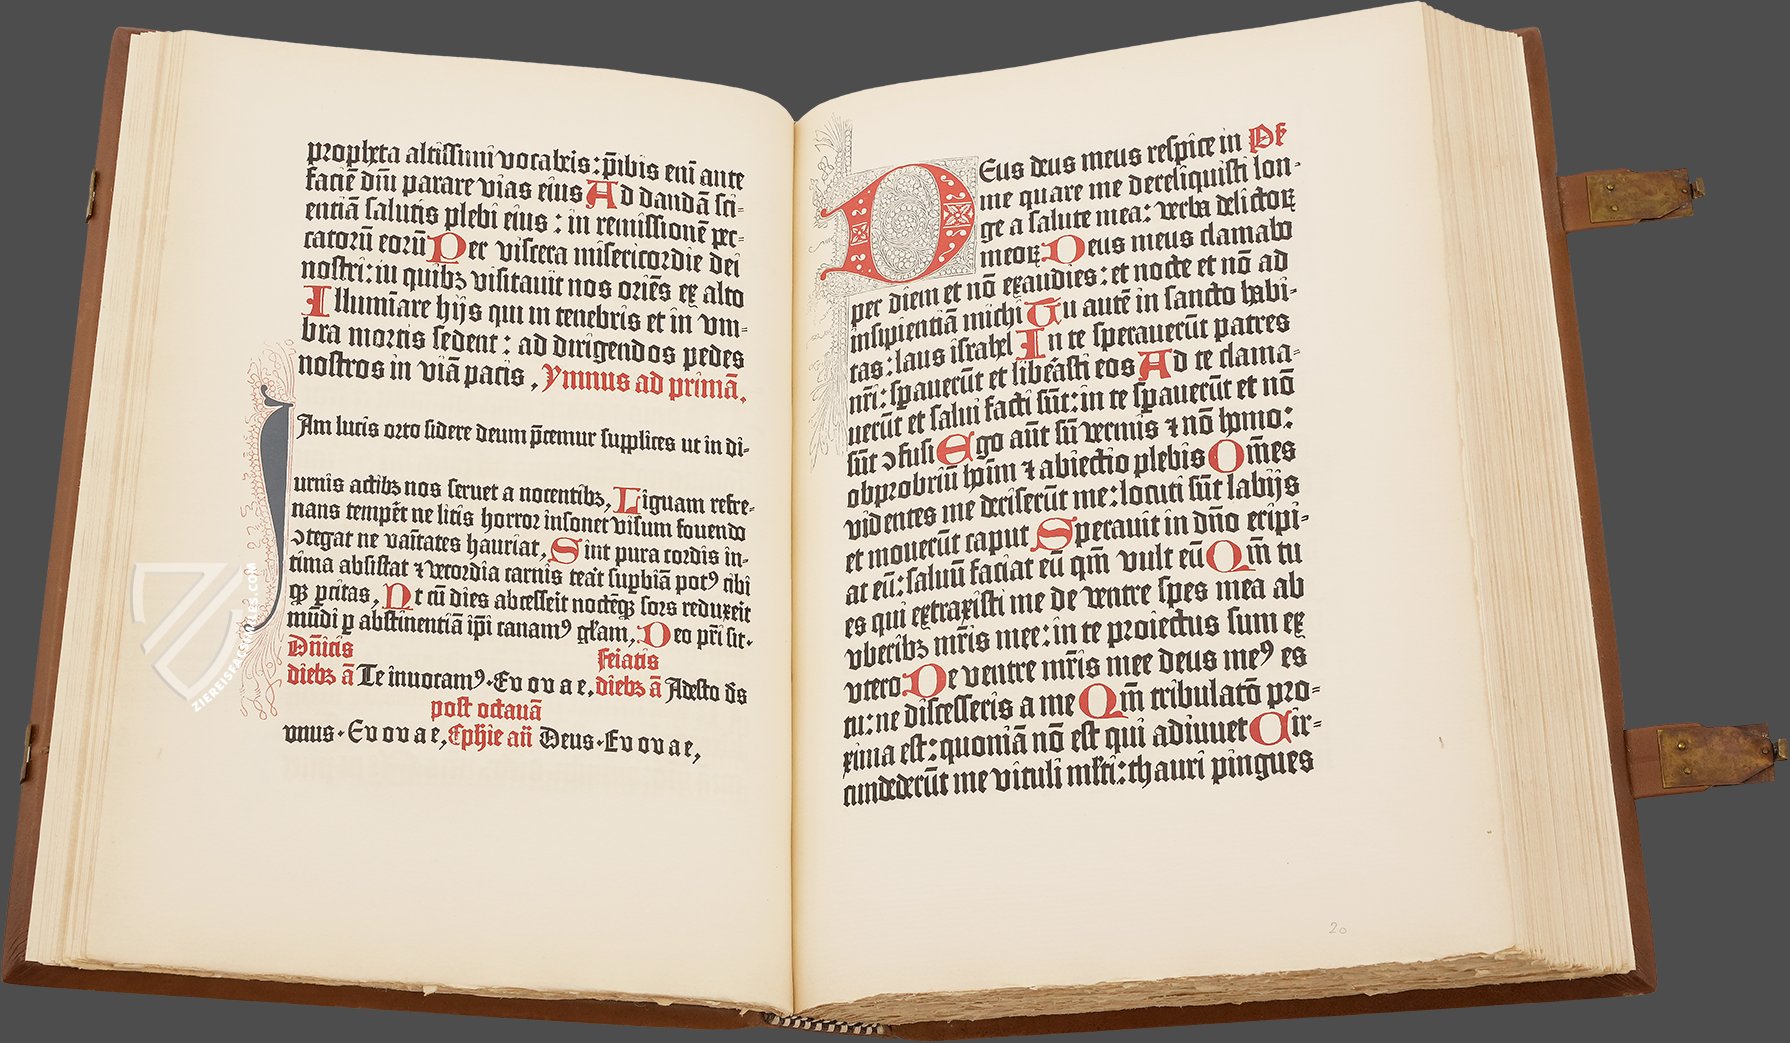 propheta altissimi vocaberis : p̄ibis eni̅ ante
facie̅ dn̅i parare vias eius Ad danda̅ sci-
entia̅ salutis plebi eius : in remissione̅ pec-
catoru̅ eoru̅ Per viscera misericordie dei
nostri : in quibꝫ visitauit nos orie̅s ex alto
Illumin̅are hijs qui in tenebris et in vm-
bra mortis sedent : ad dirigendos pedes
nostros in via̅ pacis , Ymnus ad prima̅.
Iam lucis orto sidere deum p̄cemur supplices ut in di-
urnis actibꝫ nos seruet a nocentibꝫ, Liguam refre-
nans temp̄et ne litis horror insonet visum fouendo
ꝯtegat ne van̅tates hauriat, Sint pura cordis in-
tima absistat ⁊ vecordia carnis teat̕ supbia̅ potꝰ cibi
qꝫ pcitas, Vt cu̅ dies abcesserit nocte̅qꝫ sors reduxerit
mu̅di p abstinentia̅ ip̅i canamꝰ gl̅am, Deo pr̅i sit.
Dn̅icis
feiatis
diebꝫ a̅ Te inuocamꝰ. Ev o v a e, diebꝫ a̅ Adesto d̅s
post octaua̅
vnus. Ev o v a e, Ephie an̅ Deus. Ev o v a e,
DEus deus meus respice in Ps̅
me quare me dereliquisti lon-
ge a salute mea : verba delictoꝝ
meoꝝ Deus meus clamabo
per diem et no̅ exaudies : et nocte et no̅ ad
insipientia̅ michi Tu aute̅ in sancto habi-
tas : laus israhel In te sperauerūt patres
nr̅i : spauerūt et libeasti eos Ad te clama-
uerūt et salui facti sūt : in te spauerūt et no̅
sūt ꝯfusi Ego aūt sū vermis ⁊ no̅ homo :
obprobriū hoi̅m ⁊ abiectio plebis Om̅es
videntes me deriserūt me : locuti sūt labijs
et mouerūt caput Sperauit in dn̅o eripi-
at eū : saluū faciat eū qm̅ vult eū Qm̅ tu
es qui extraxisti me de ventre spes mea ab
vberibꝫ mr̅is mee : in te proiectus sum ex
vtero De ventre mr̅is mee deus meꝰ es
tu : ne discesseris a me Qm̅ tribulato̅ pro-
xima est : quonia̅ no̅ est qui adiuuet Cir-
cundederūt me vituli ml̅ti : thauri pingues
20
ZIEREISFACSIMILES.COM